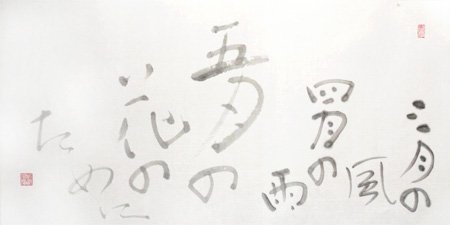 三月の
風
四月の
雨
五月の
花の
ために